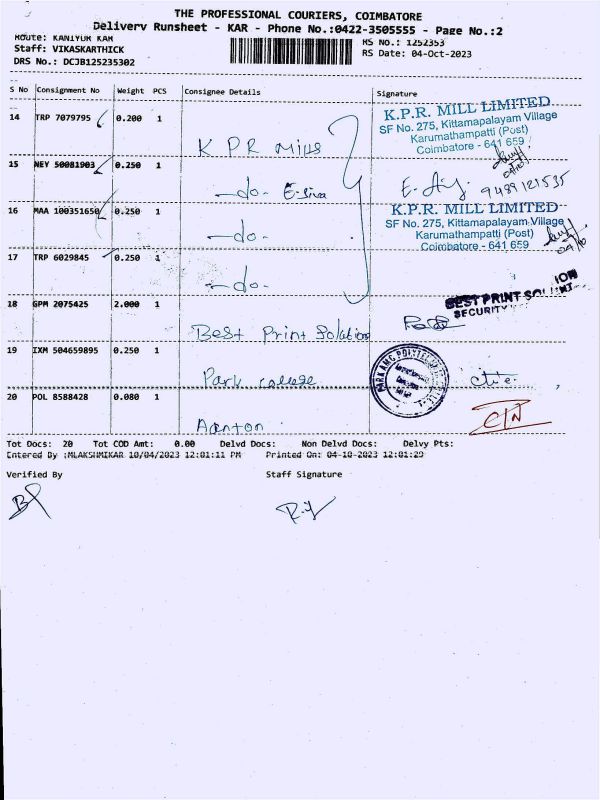 THE PROFESSIONAL COURIERS, COIMBATORE
Delivery Runsheet - KAR - Phone No.:0422-3505555 - Page No.:2
Route: KANIYUR KAR
RS No.: 1252353
Staff: VIKASKARTHICK
RS Date: 04-Oct-2023
DRS No.: DCJB125235302
S No Consignment No Weight PCS Consignee Details Signature
14 TRP 7079795 0.200 1 K P R Mills
K.P.R. MILL LIMITED
SF No. 275, Kittamapalayam Village
Karumathampatti (Post)
Coimbatore - 641 659
15 NEY 50081903 0.250 1 -do- E-Siva
9489121535
16 MAA 100351650 0.250 1 -do-
K.P.R. MILL LIMITED
SF No. 275, Kittamapalayam Village
Karumathampatti (Post)
Coimbatore - 641 659
17 TRP 6029845 0.250 1 -do-
18 GPM 2075425 2.000 1 Best Print Solation
BEST PRINT
SECURITY
19 IXM 504659895 0.250 1 Park college
20 POL 8588428 0.080 1 Aanton
Tot Docs: 20 Tot COD Amt: 0.00 Delvd Docs: Non Delvd Docs: Delvy Pts:
Entered By :MLAKSHMIKAR 10/04/2023 12:01:11 PM Printed On: 04-10-2023 12:01:29
Verified By Staff Signature